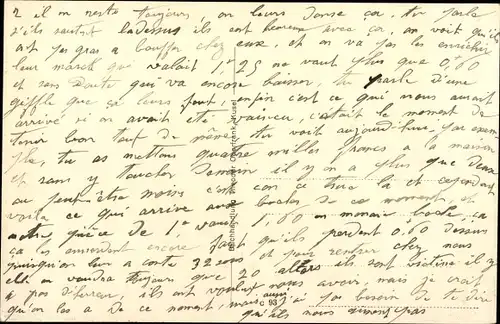 2 il m reste toujours, on leurs donne ça, tu parle
s'ils sautent la dessus ils sont heureux avec ça, on voit qu'ils
ont pas gras a bouffer chez eux, et on va pas les enrichir
leur marck qui valait 1,25 ne vaut plus que 0,60
et sans doute qui va encore baisser, tu parle d'une
giffle que ça leurs fout, enfin c'est ce qui nous aurait
arrivé si on avait été vaincu, c'était le moment de
tenir bon tout de même tu voit aujourd'hui, par exem
ple, tu as mettons quatre milles francs a la maison
et sans y toucher demain il y en a plus que deux
ou peut-être moins c'est con ce truc là et cependant
voila ce qui arrive aux boches de ce moment, et
notre pièce de 1,0 vaut 1,60 en monnaie boche, ça
ça les emmerdent encore qu'ils perdent 0.60 dessus
puisqu'on leur a conte 32 sous et pour rentrer chez nous
elle en vaudra toujours que 20 alors ils sont victime il y
a pas d'erreur, ils ont voulu nous avoir, mais je crois
qu'on les a de ce moment, mais j'ai pas besoin de te dire
aussi
qu'ils nous aiment pas
C 93